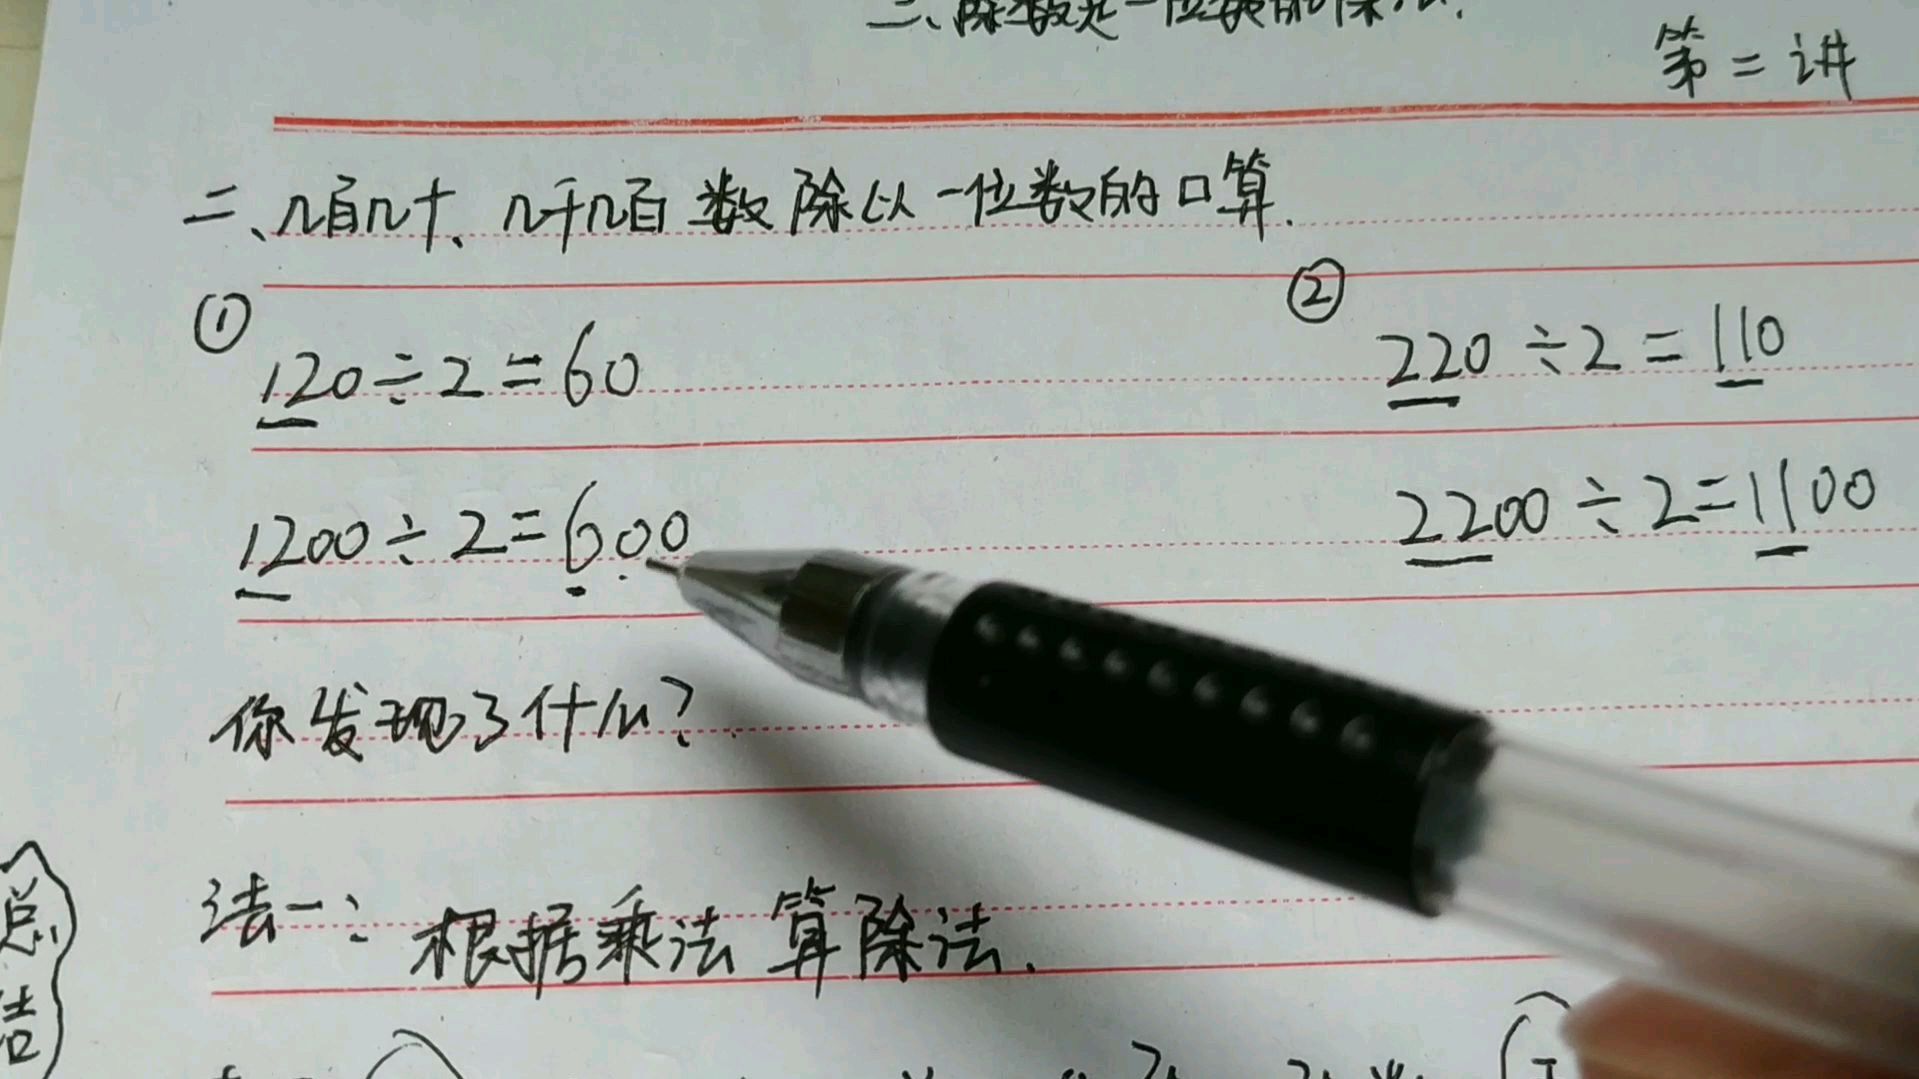 二、除数是一位数的除法.
第二讲
二、几百几十、几千几百数除以一位数的口算.
① ②
120÷2=60 220÷2=110
1200÷2=600 2200÷2=1100
你发现了什么?
法一: 根据乘法算除法.
总
结